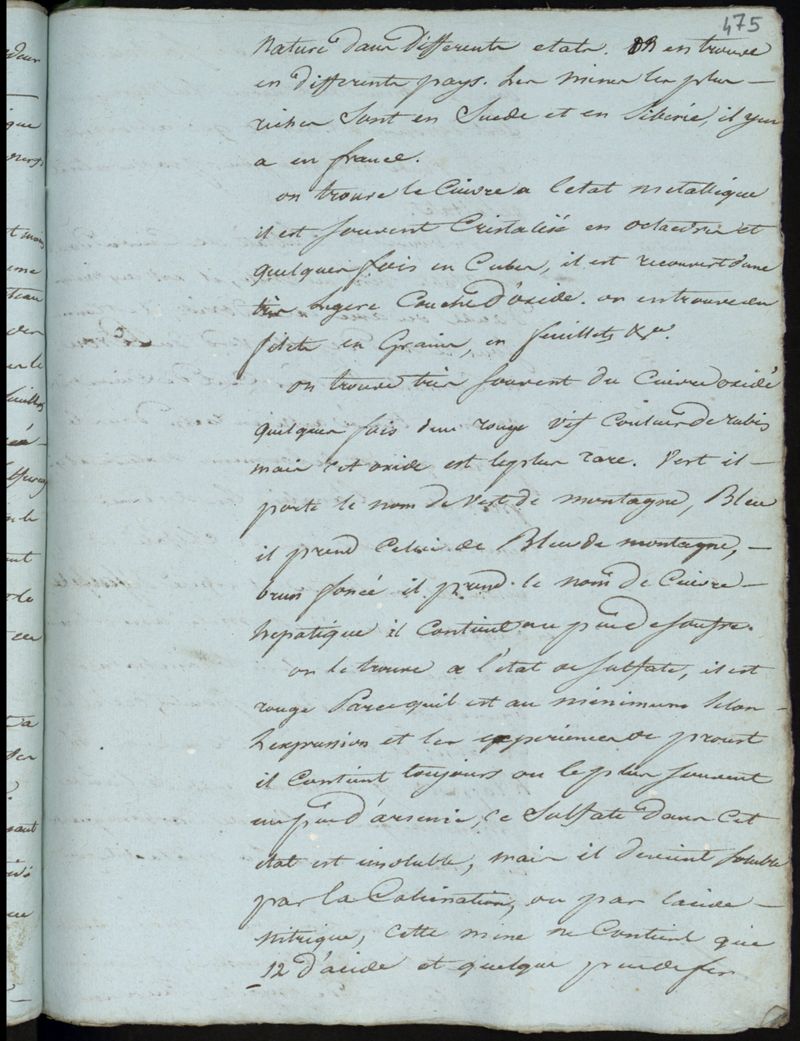 475
Nature dans Differents etats. on en trouve
en differents pays. Les mines les plus –
riches Sont en Suede et en Siberie, il y en
a en france.
on trouve le Cuivre a letat metallique
il est souvent Cristalisé en octaedres et
quelques fois en Cubes, il est recouvert dune
très legere Couche D'oxide. on en trouve en
filets en Grains, en feuillets &ca.
on trouve très souvent du Cuivre oxidé
quelques fois dun rouge vif Couleur de rubis
mais cet oxide est le plus rare. Vert il –
porte le nom de Vert de montagne, Bleu
il prend Celui de Bleu de montagne, –
brun foncé il prend le nom de Cuivre –
hepatique il Contient un peu de soufre.
on le trouve a l'état de sulfate, il est
rouge Parcequil est au minimum Selon –
Lexpression et les experiences de proust
il Contient toujours ou le plus souvent
un peu d'arsenic, Ce Sulfate dans Cet
état est insoluble, mais il devient soluble
par la Calcination, ou par lacide –
nitrique, Cette mine ne Contient que
12 D'acide et quelque peu de fer